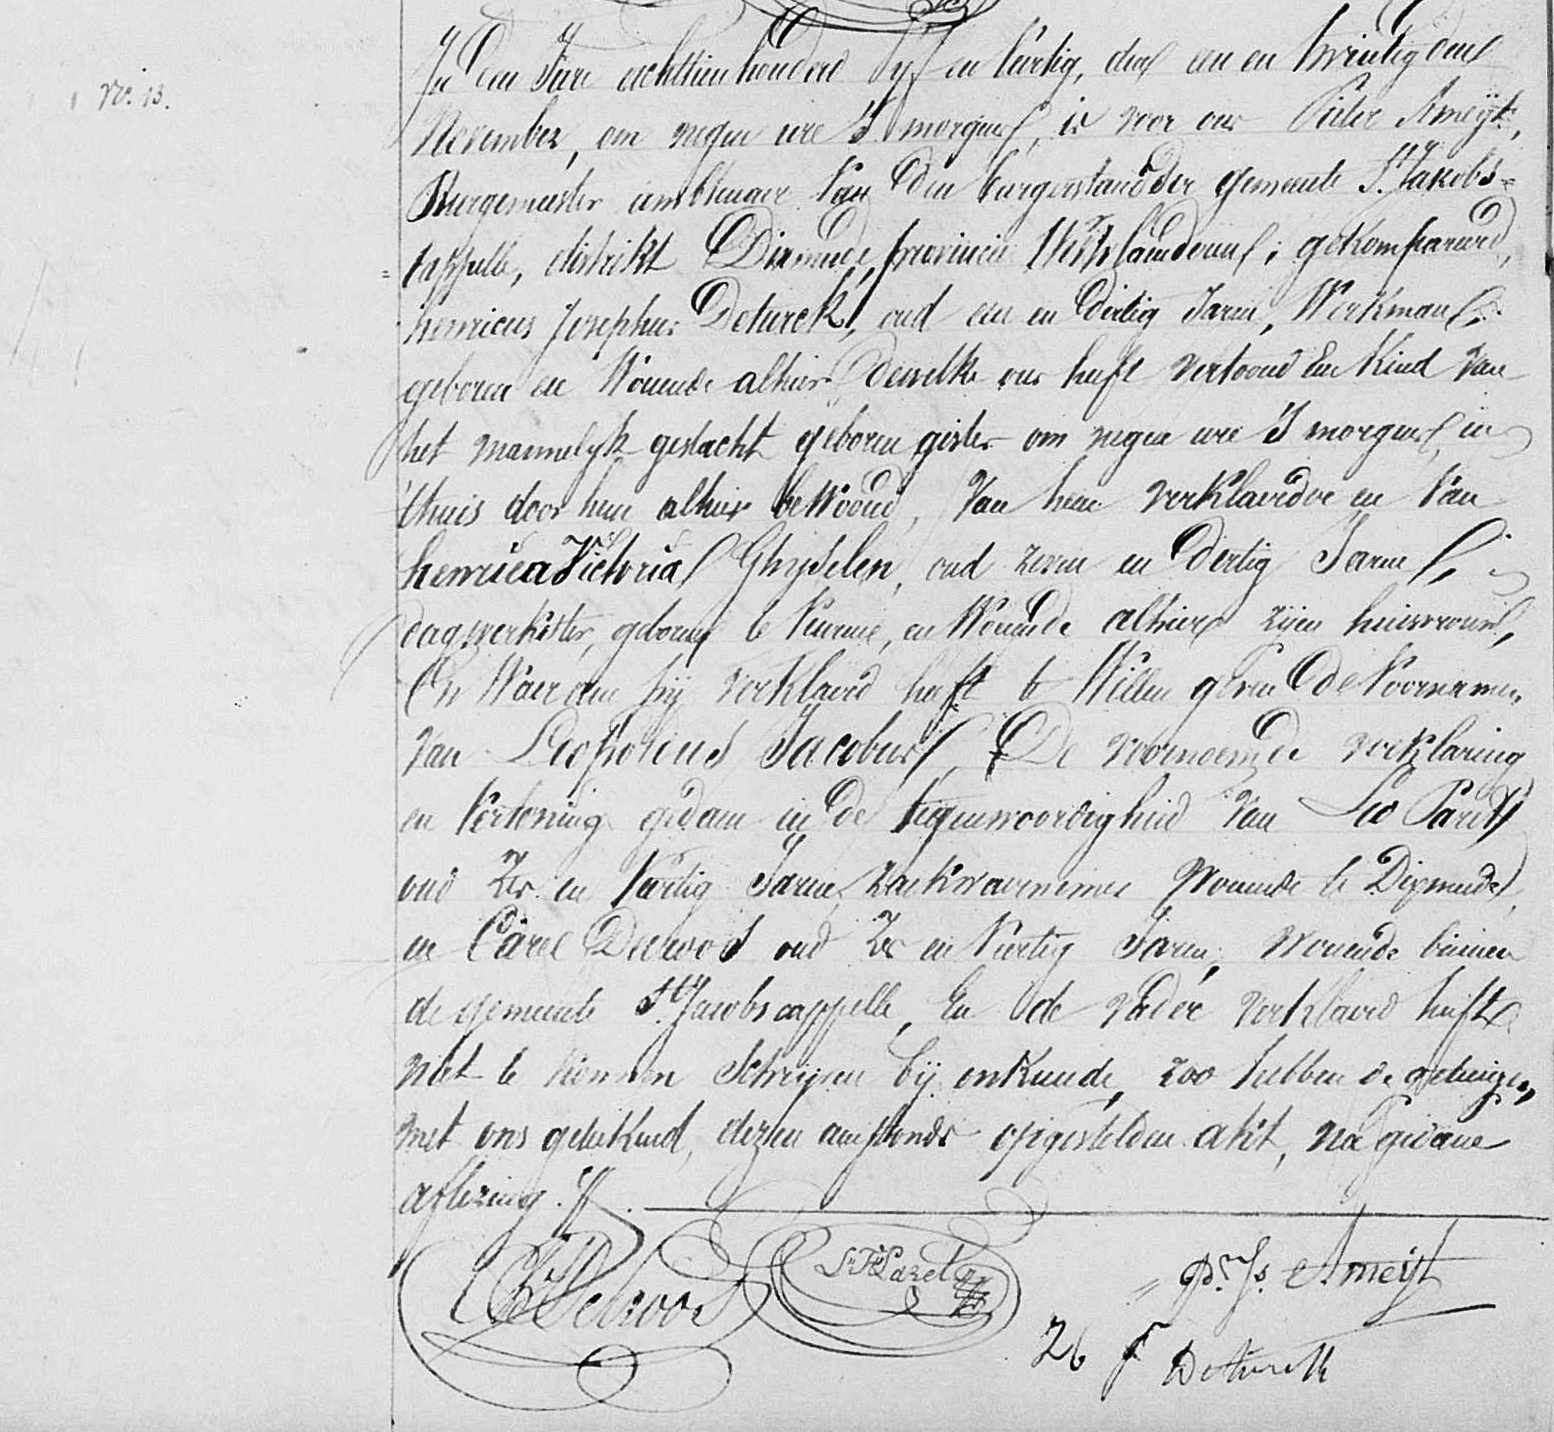 N.º 13.
In den Jare achttien honderd vyf en viertig, den een en twintigden
November, om negen ure 's morgens, is voor ons Pieter Ameyt,
Burgemeester ambtenaer van den burgerstand der gemeente S.t Jakobs=
=cappelle, distrikt Dixmude, provincie Westvlaenderen; gekompareerd,
henricus Josephus Deturck, oud een en dertig Jaren, Werkman,
geboren en Wonende alhier, dewelke ons heeft vertoond Een Kind van
het mannelyk geslacht geboren gister om negen ure 's morgens, in
't huis door hem alhier bewoond, Van hem verklaerder en Van
henrica Victoria Ghyselen, oud zeven en dertig Jaren,
dagwerkster, geboren te Veurne, en Wonende alhier zijne huisvrouw,
En Waeraen hij verklaerd heeft te Willen geven De Voornamen
van Leopoldus Jacobus, De voornoemde verklaring
en Vertoning gedaen in de tegenwoordigheid Van Leo Paret
oud Zes en Viertig Jaren, zaekwaernemer Wonende te Dixmude,
en Carel Decroos oud Zes en Viertig Jaren, Wonende binnen
de gemeente S.t Jacobscappelle, En de vader verklaerd heeft
niet te konnen Schryven bij onkunde, zoo hebben de getuigen,
met ons geteekend, dezen aenstonds opgestelden akt, na gedane
aflezing.
C Decroos
Paret
P.r J.s Ameyt
26
Deturck